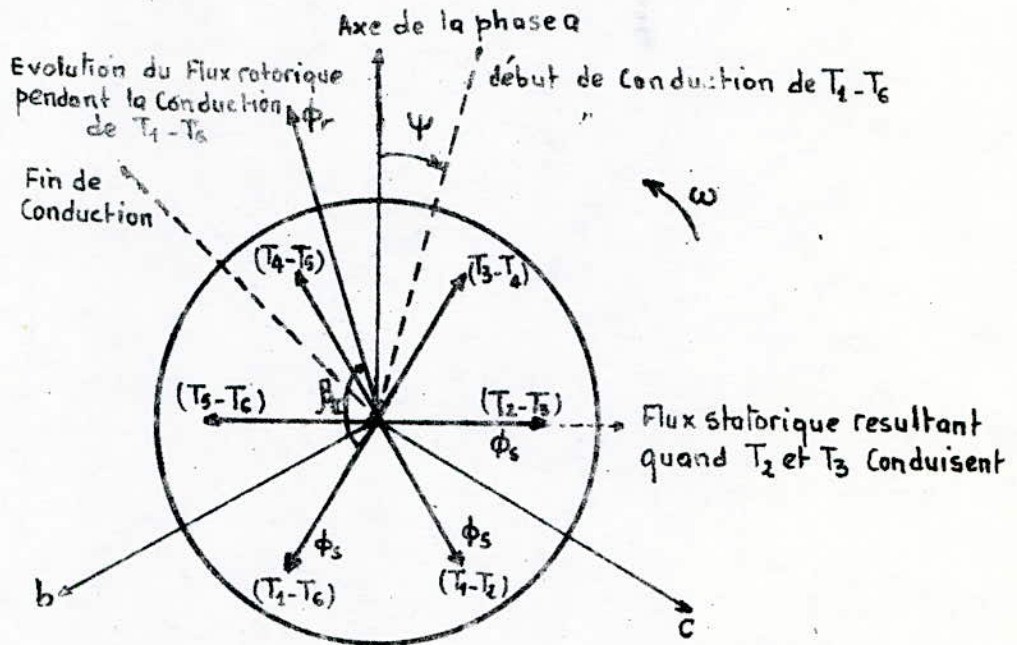 Axe de la phase a
Evolution du Flux rotorique
pendant la Conduction
de T1-T6
ϕr
ψ
début de Conduction de T1-T6
Fin de
Conduction
ω
(T4-T5)
(T3-T4)
(T5-T6)
(T2-T3)
ϕs
Flux statorique resultant
quand T2 et T3 Conduisent
ϕs
(T1-T6)
ϕs
(T1-T2)
b
c